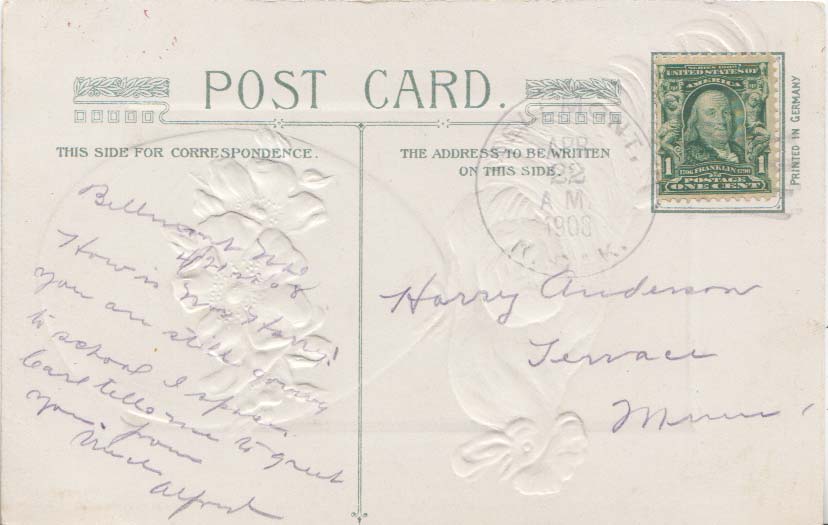 POST CARD.
THIS SIDE FOR CORRESPONDENCE.
THE ADDRESS TO BE WRITTEN
ON THIS SIDE.
PRINTED IN GERMANY
SERIES 1902
UNITED STATES OF
AMERICA
1 1
1706 FRANKLIN 1790
POSTAGE
ONE CENT
MONT,
APR
22
A M
1908
4/21-08
How is Harry!
you are still going
to school I
Carl tells me to greet
you. from
Uncle
Alfred
Harry Anderson
Terrace
Minn,